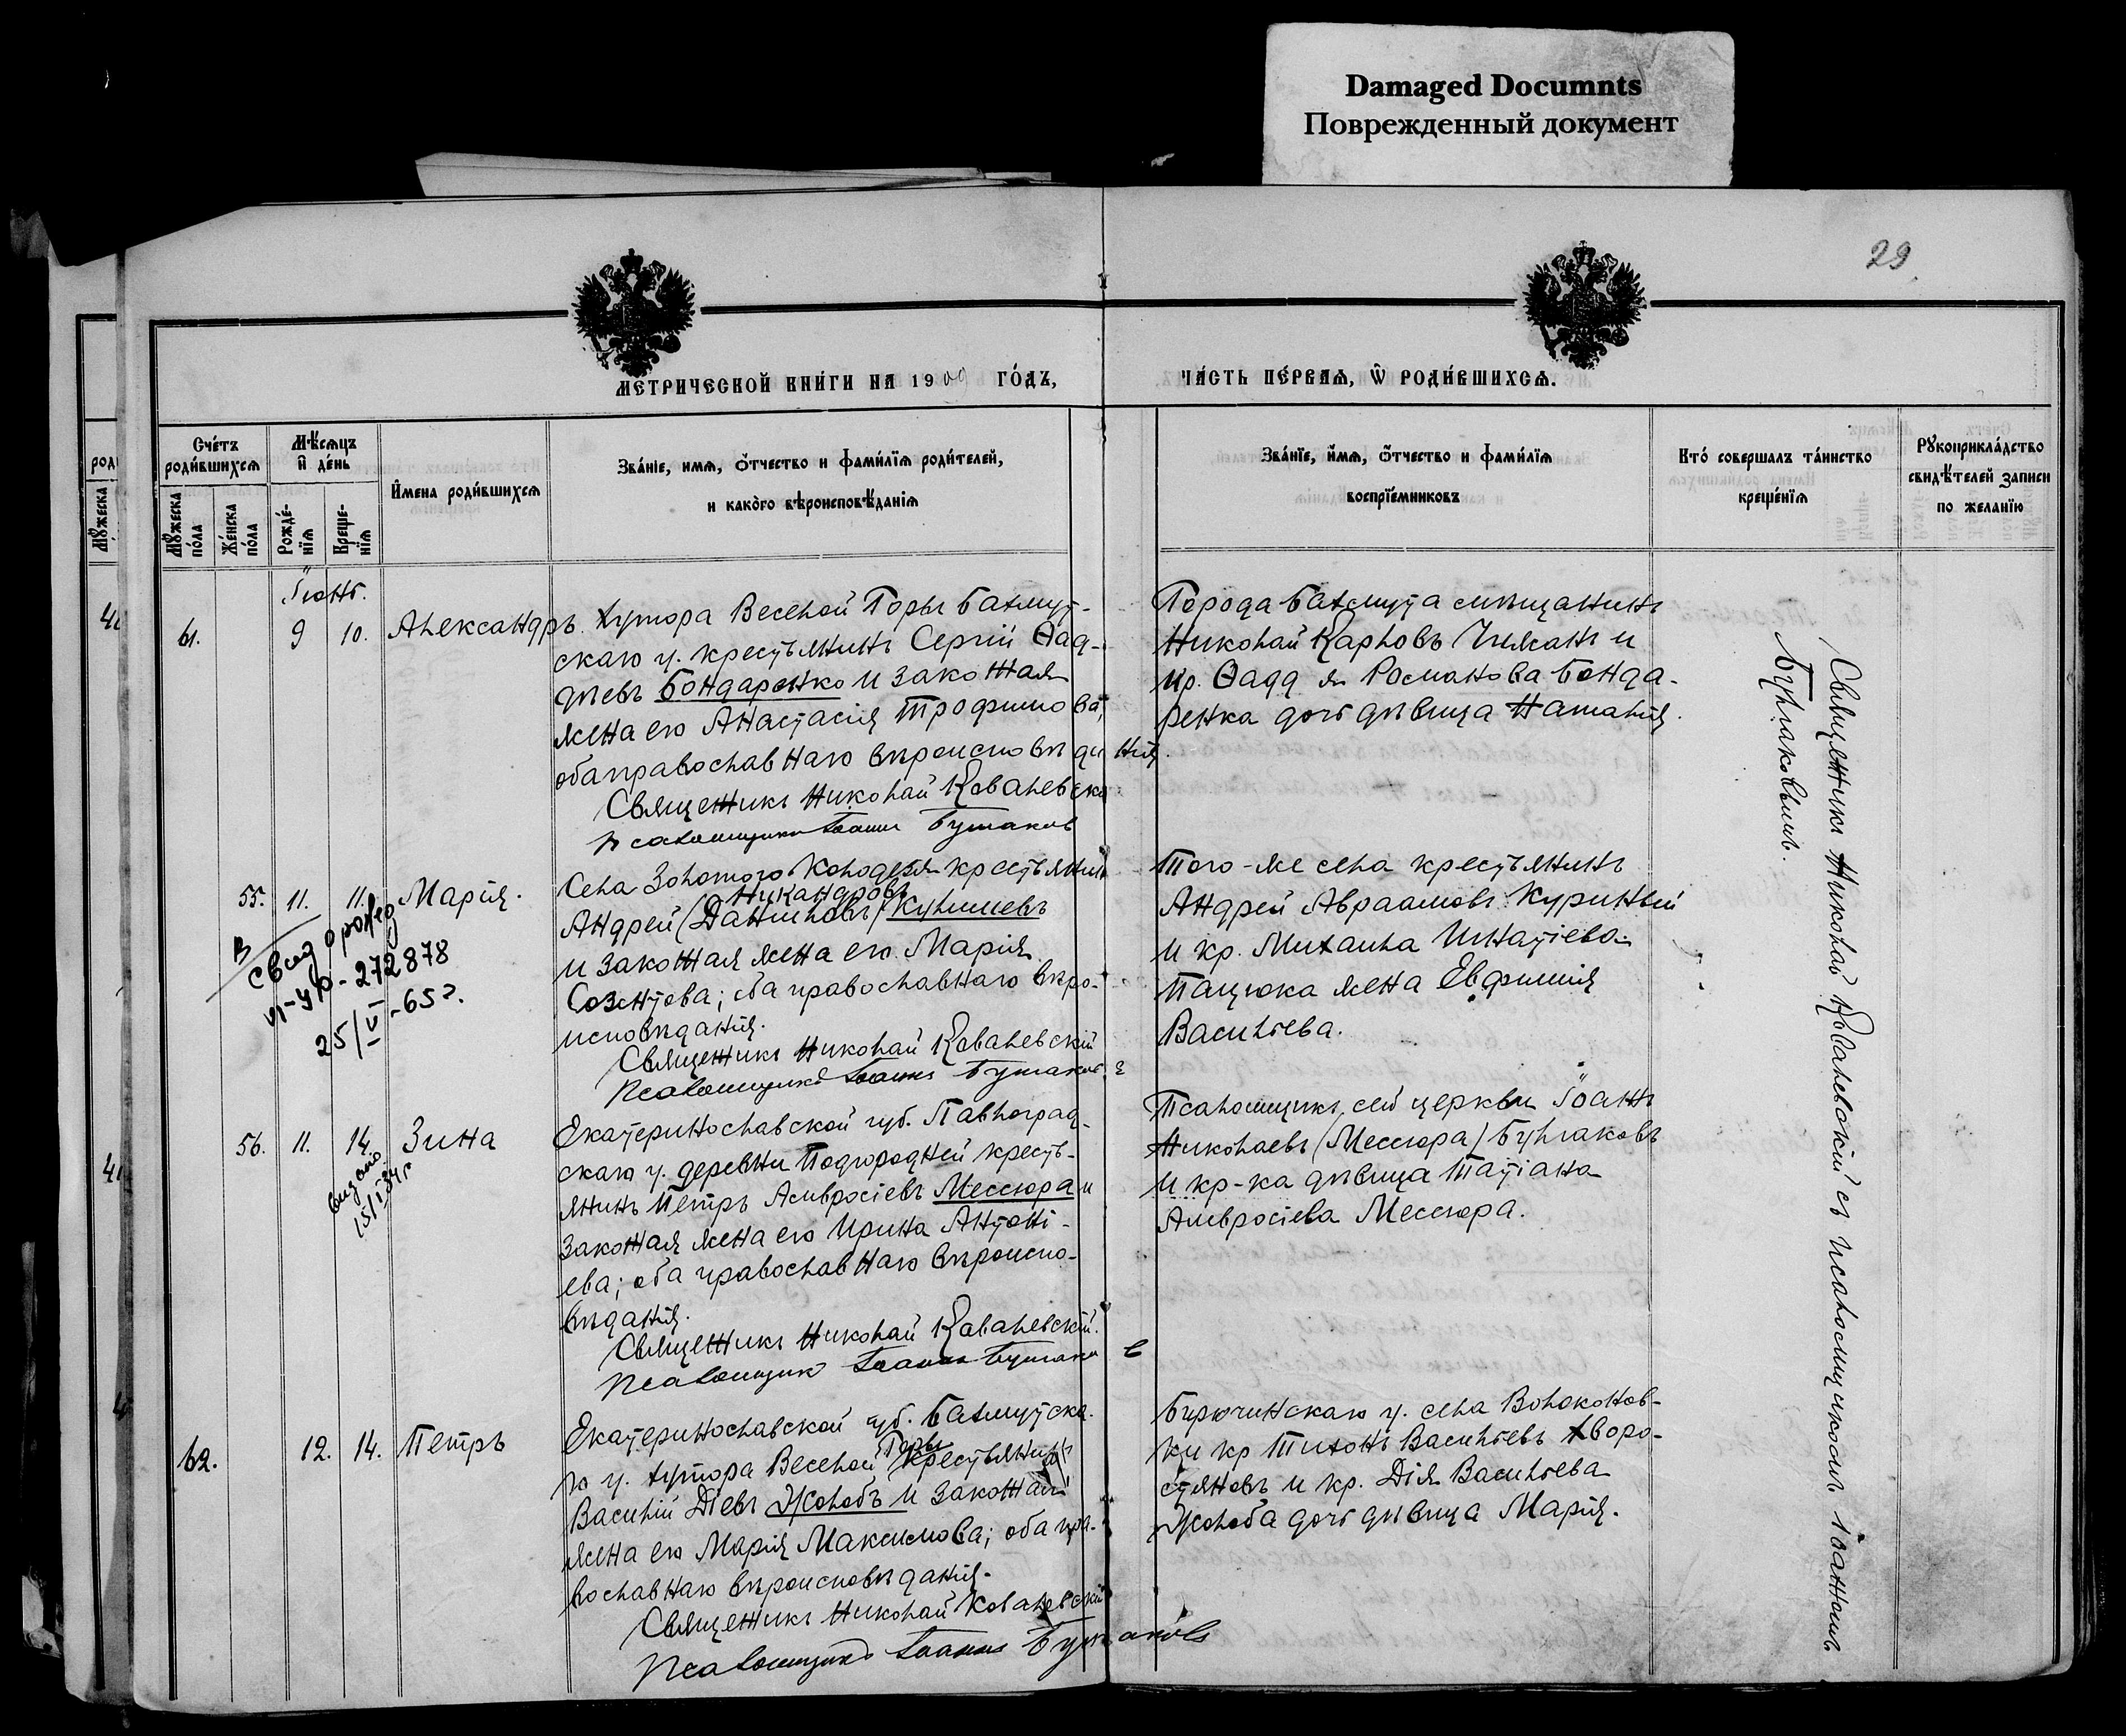 Damaged Documnts
Поврежденный документ
29.
МЕТРИЧЕСКОЙ КНИГИ НА 1909 ГОДЪ,
ЧАСТЬ ПЕРВАЯ, Ѿ РОДИВШИХСЯ.
Счетъ родившихся
Мужеска пола
Женска пола
Мѣсяцъ и день
Рожденія
Крещенія
Имена родившихся
Званіе, имя, отчество и фамилія родителей,
и какого вѣроисповѣданія
Званіе, имя, отчество и фамилія
воспріемниковъ
Кто совершалъ таинство
крещенія
Рукоприкладство
свидѣтелей записи
по желанію
Іюнь.
61. 9 10. Александръ.
Хутора Веселой Горы Бахмут-
скаго у. крестьянинъ Сергій Ѳад-
дѣевъ Бондаренко и законная
жена его Анастасія Трофимова,
оба православнаго вѣроисповѣданія.
Священникъ Николай Ковалевскій
Псаломщикъ Іоаннъ Булгаков
Города Бахмута мѣщанинъ
Николай Карповъ Чижанъ и
кр. Ѳаддея Романова Бонда-
ренка дочь дѣвица Наталія.
55. 11. 11. Марія.
В
свид о рожд
VI-УР-272878
25/V-65г.
Села Золотого Колодезя крестьянинъ
Никандровъ
Андрей (Даниловъ) Кулишевъ
и законная жена его Марія
Созонтова; оба православнаго вѣро-
исповѣданія.
Священникъ Николай Ковалевскій
Псаломщикъ Іоаннъ Булгаковъ
Того-же села крестьянинъ
Андрей Авраамовъ Куриный
и кр. Михаила Игнатіева
Пацюка жена Евфимія
Васильева.
56. 11. 14. Зина
выдано
15/I 34 г
Екатеринославской губ. Павлоград-
скаго у. деревни Подгородней кресть-
янинъ Петръ Амвросіевъ Мессюра и
законная жена его Ирина Антоні-
ева; оба православнаго вѣроиспо-
вѣданія.
Священникъ Николай Ковалевскій.
Псаломщик Іоаннъ Булгаков
Псаломщикъ сей церкви Іоаннъ
Николаевъ (Мессюра) Булгаковъ
и кр-ка дѣвица Татіана
Амвросіева Мессюра.
62. 12. 14. Петръ
Екатеринославской губ. Бахмутска-
го у. хутора Веселой Горы крестьянинъ
Василій Діевъ Жолобъ и законная
жена его Марія Максимова; оба пра-
вославнаго вѣроисповѣданія.
Священникъ Николай Ковалевскій
Псаломщикъ Іоаннъ Булгаковъ
Бирючинскаго у. села Волоконов-
ки кр Тихонъ Васильевъ Хворо-
стяновъ и кр. Дія Васильева
Жолоба дочь дѣвица Марія.
Священникъ Николай Ковалевскій съ псаломщикомъ Іоанномъ
Булгаковымъ.